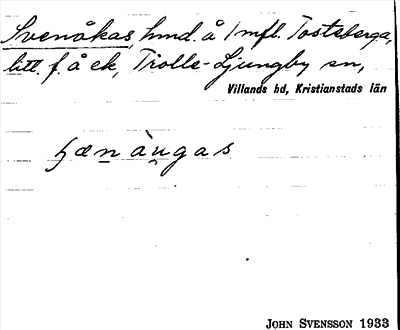 Svenåkas, hmd. å 1 mfl. Tosteberga,
litt. f. å ek, Trolle-Ljungby sn,
Villands hd, Kristianstads län
àu̯gas
JOHN SVENSSON 1933